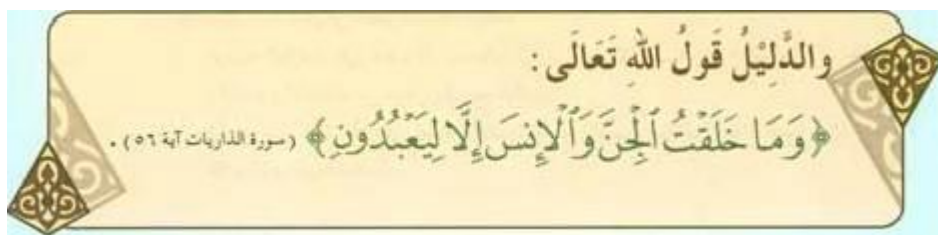 والدَّلِيْلُ قَولُ اللهِ تَعَالَى :
﴿وَمَا خَلَقْتُ ٱلْجِنَّ وَٱلْإِنسَ إِلَّا لِيَعْبُدُونِ﴾ (سورة الذاريات آية ٥٦) .